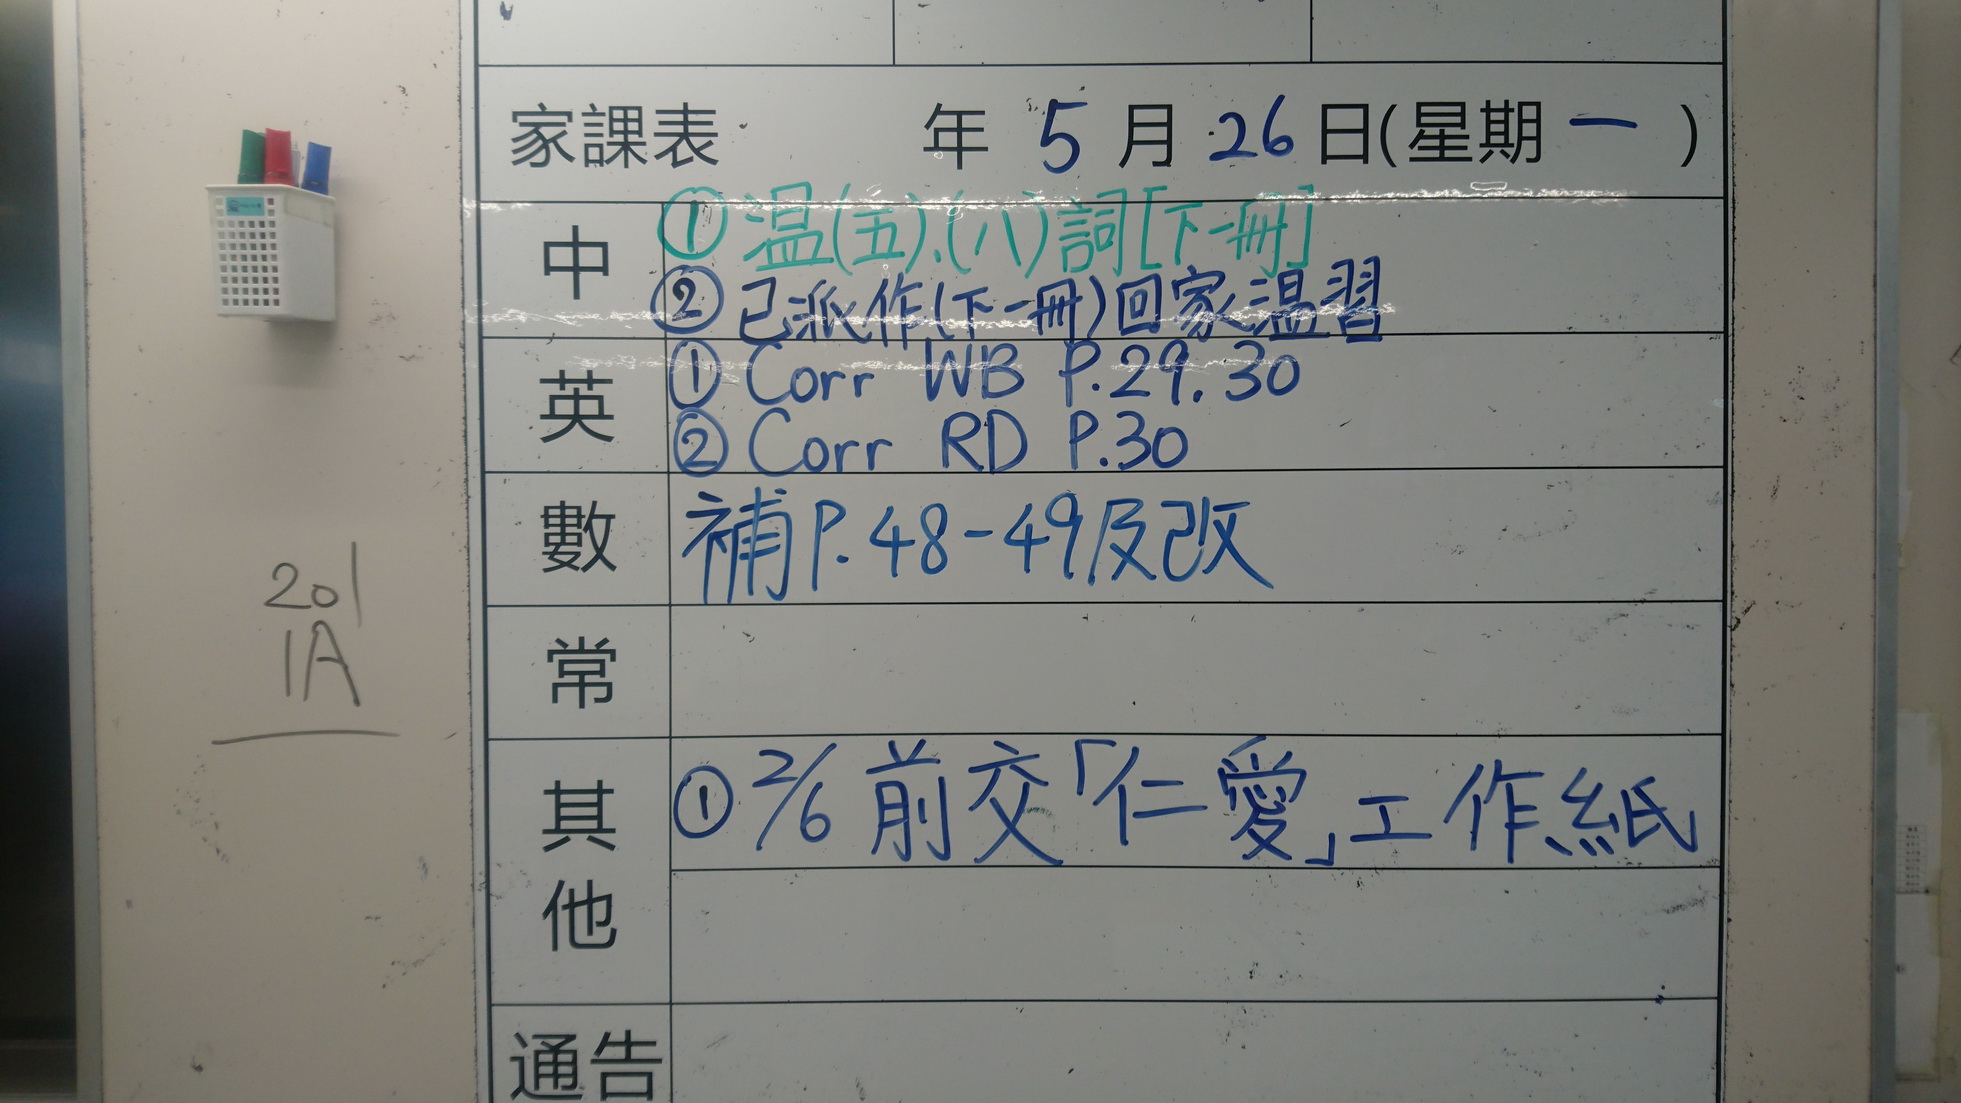 家課表 年 5 月 26 日(星期 一 )
中
① 温(五)、(八)詞[下一冊]
② 已派作(下一冊)回家温習
英
① Corr WB P.29. 30
② Corr RD P.30
數
補P.48-49及改
常
其他
① 2/6 前交「仁愛」工作紙
通告
201
1A